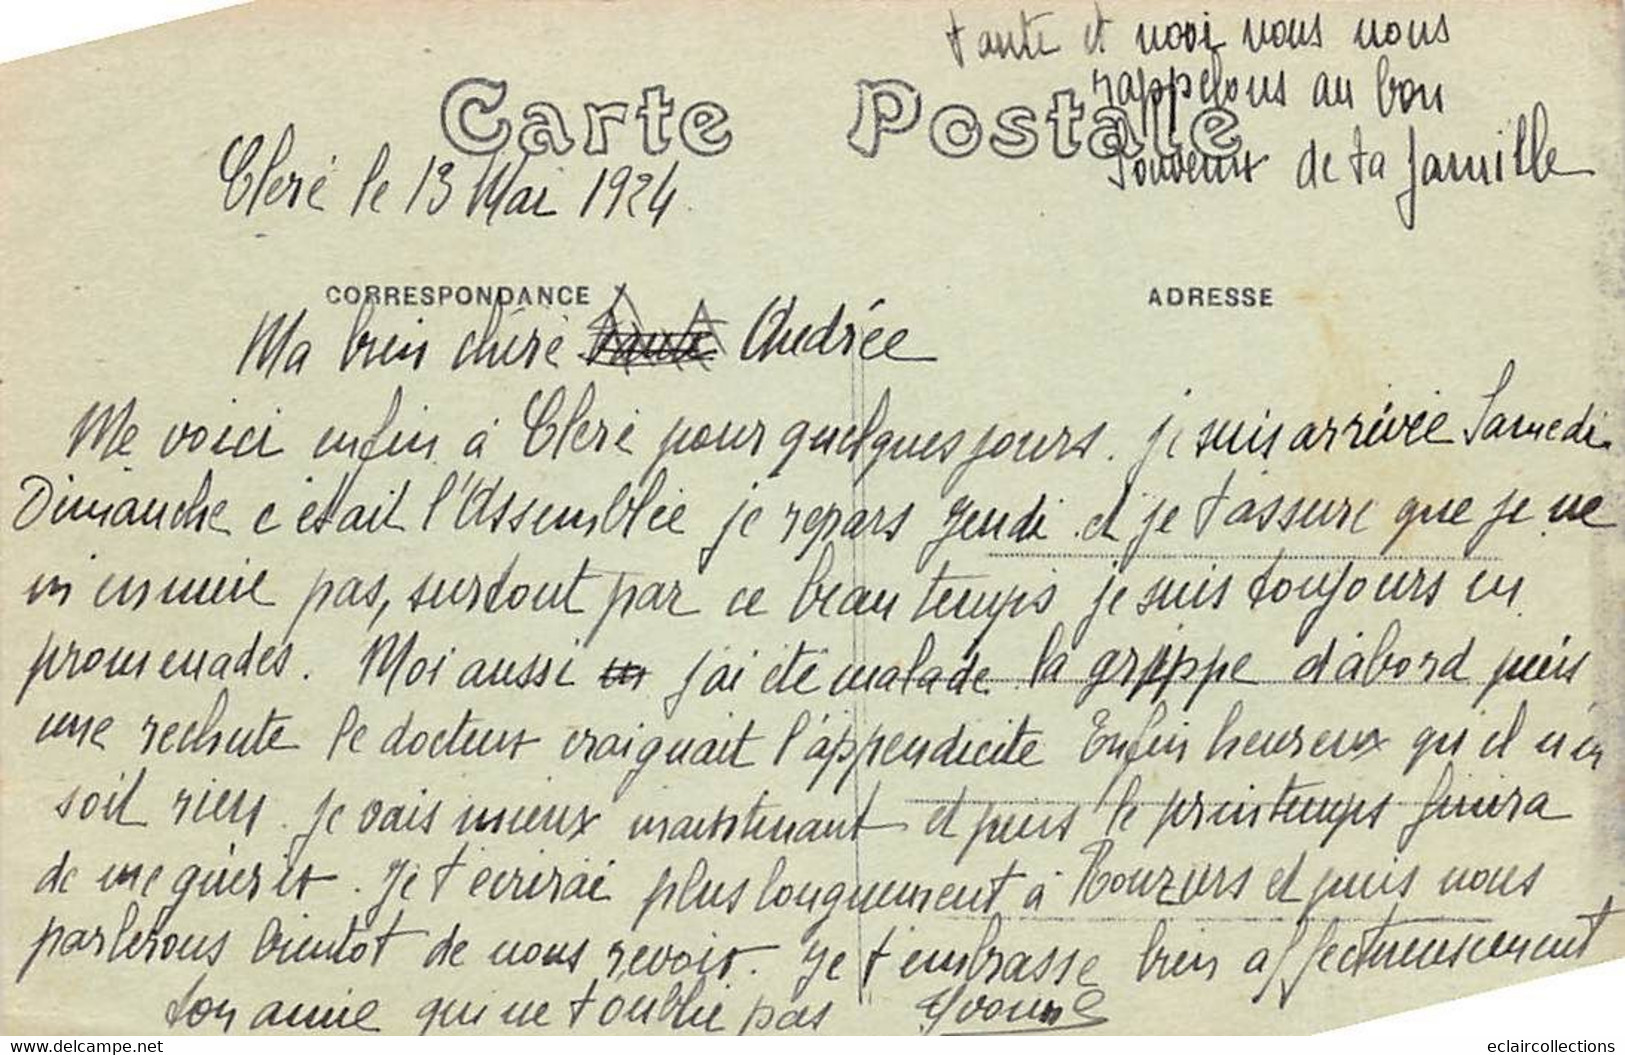 tante et moi nous nous
rappelons au bon
souvenir de ta famille
Carte Postale
Cleré le 13 Mai 1924.
CORRESPONDANCE
ADRESSE
Ma bien chéré Andrée
Me voici enfin à Cleré pour quelques jours. je suis arrivée Samedi
Dimanche c'était l'Assemblée je repars Jeudi et je t'assure que je ne
m'ennuie pas, surtout par ce beau temps je suis toujours en
promenades. Moi aussi j'ai été malade la grippe d'abord puis
une rechute le docteur craignait l'appendicite Enfin heureux qu'il n'en
soit rien. Je vais mieux maintenant et puis le printemps finira
de me guérir. Je t'écrirai plus longuement à Rouziers et puis nous
parlerons bientôt de nous revoir. Je t'embrasse bien affectueusement
ton amie qui ne t'oublie pas Yvonne
www.delcampe.net
eclaircollections